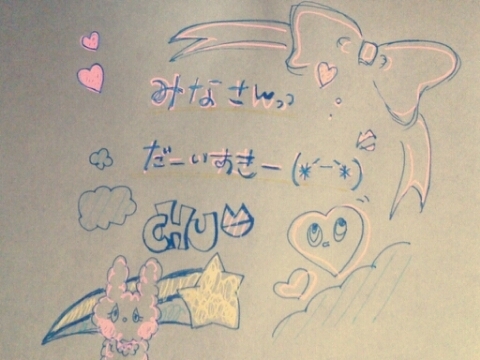 みなさんっっ
だーいすきー(*´ー`*)
CHU